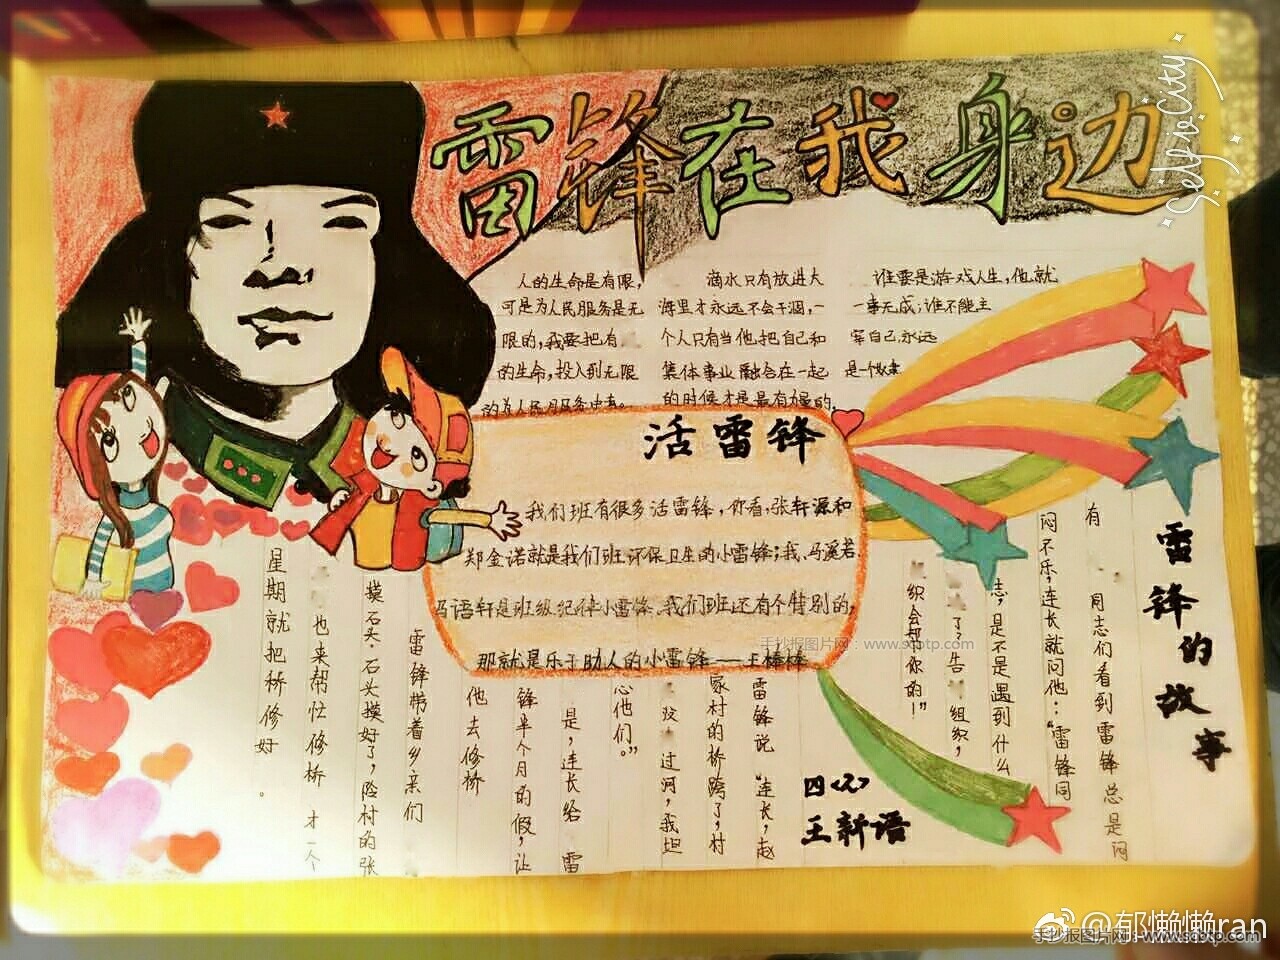 雷锋在我身边
人的生命是有限,
可是为人民服务是无
限的,我要把有
的生命,投入到无限
的为人民服务中去。
滴水只有放进大
海里才永远不会干涸,一
个人只有当他把自己和
集体事业融合在一起
的时候才是最有力量的。
谁要是游戏人生,他就
一事无成;谁不能主
宰自己永远
是一个奴隶
活雷锋
我们班有很多活雷锋,你看,张轩源和
郑金诺就是我们班环保卫生的小雷锋;我、马溪若、
马语轩是班级纪律小雷锋、我们班还有个特别的,
那就是乐于助人的小雷锋——王棒棒
雷锋的故事
有
同志们看到雷锋总是闷
闷不乐,连长就问他:“雷锋同
志,是不是遇到什么
了?告 组织,
织会帮你的!”
雷锋说“连长,赵
家村的桥跨了,村
没 过河,我担
心他们。”
是,连长给 雷
锋半个月的假,让
他去修桥
雷锋带着乡亲们
摸石头,石头摸好了,险村的张
也来帮忙修桥 才一个
星期就把桥修好。
四<2>
王新语
SelfieCity
手抄报图片网:www.scbtp.com
@郁懒懒ran
手抄报图片网:www.scbtp.com